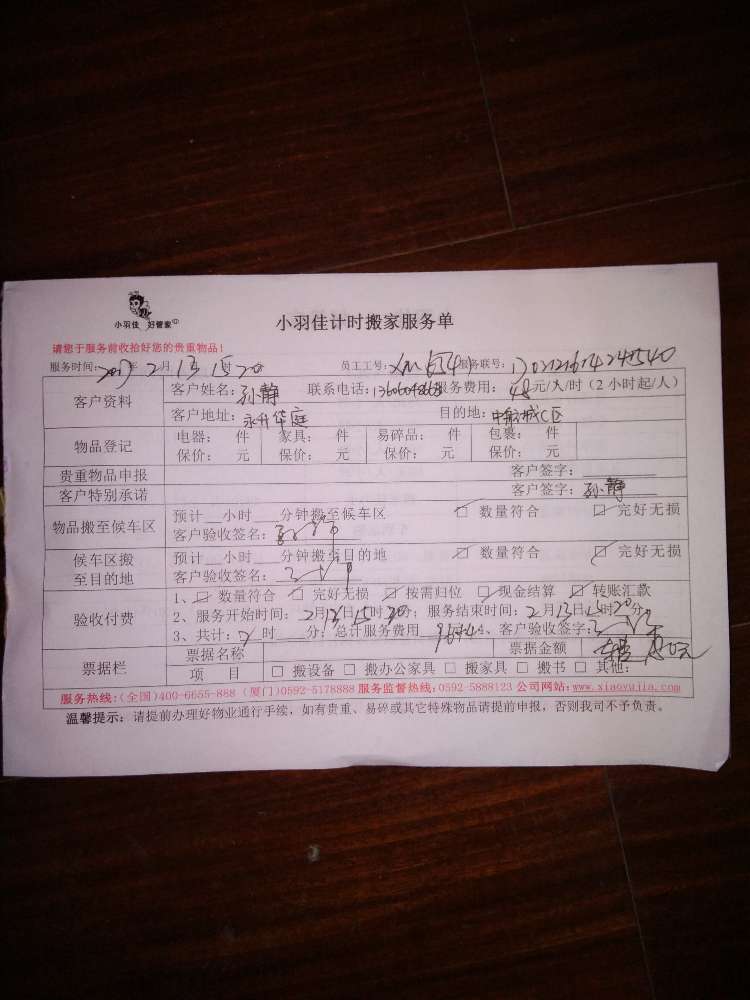 小羽佳 好管家
小羽佳计时搬家服务单
请您于服务前收拾好您的贵重物品!
服务时间: 年 2 月 13 15 时 20 员工工号: 服务联号:
客户资料 客户姓名: 孙静 联系电话: 服务费用: 48 元/人/时 (2 小时起/人)
客户地址: 永升华庭 目的地: 中航城C区
物品登记 电器: 件 家具: 件 易碎品: 件 包裹: 件
保价: 元 保价: 元 保价: 元 保价: 元
贵重物品申报 客户签字:
客户特别承诺 客户签字: 孙静
物品搬至候车区 预计__小时__分钟搬至候车区 □ 数量符合 □ 完好无损
客户验收签名:
候车区搬至目的地 预计__小时__分钟搬至目的地 □ 数量符合 □ 完好无损
客户验收签名:
验收付费 1、□ 数量符合 □ 完好无损 □ 按需归位 □ 现金结算 □ 转账汇款
2、服务开始时间: 2月13日15时 分; 服务结束时间: 2月13日 时20分;
3、共计: 2 时 分; 总计服务费用 、客户验收签字:
票据栏 票据名称 票据金额
项 目 □ 搬设备 □ 搬办公家具 □ 搬家具 □ 搬书 □ 其他:
服务热线:(全国)400-6655-888 (厦门)0592-5178888 服务监督热线:0592-5888123 公司网站:www.xiaoyujia.com
温馨提示: 请提前办理好物业通行手续, 如有贵重、易碎或其它特殊物品请提前申报, 否则我司不予负责。